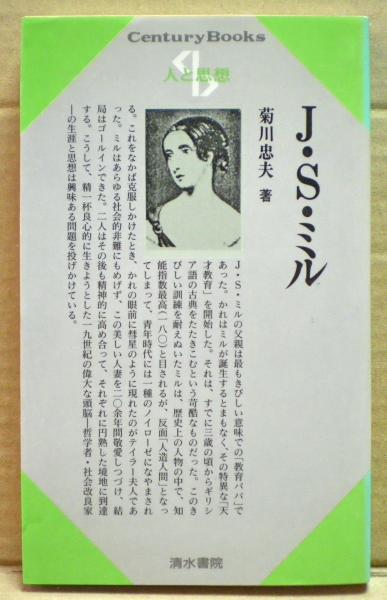 Century Books
人と思想
J・S・ミル
菊川忠夫 著
J・S・ミルの父親は最もきびしい意味での「教育パパ」で
あった。かれはミルが誕生するとまもなく、その特異な「天
才教育」を開始した。それは、すでに三歳の頃からギリシ
ア語の古典をたたきこむという苛酷なものだった。このき
びしい訓練を耐えぬいたミルは、歴史上の人物の中で、知
能指数最高(一八〇)と目されるが、反面「人造人間」となっ
てしまって、青年時代には一種のノイローゼになやまされ
る。これをなかば克服しかけたとき、かれの眼前に彗星のように現れたのがテイラー夫人であ
った。ミルはあらゆる社会的非難にもめげず、この美しい人妻を二〇余年間敬愛しつづけ、結
局はゴールインできた。二人はその後も精神的に高め合って、それぞれに円熟した境地に到達
する。こうして、精一杯良心的に生きようとした一九世紀の偉大な頭脳―哲学者・社会改良家
―の生涯と思想は興味ある問題を投げかけている。
清水書院